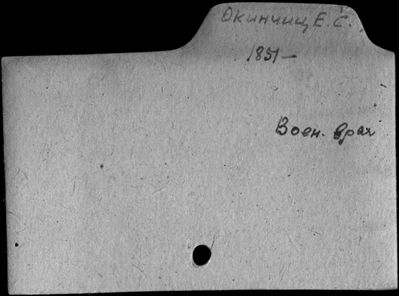 Окинчиц Е. С.
1851 —
Воен. врач